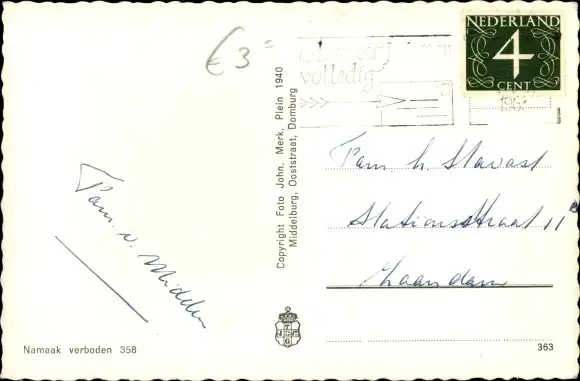 € 3 =
NEDERLAND
4
CENT
volledig
Copyright Foto John. Merk, Plein 1940
Middelburg, Ooststraat, Domburg
Fam. v. Midden
Fam h. Stavast
Stationsstraat 11
Zaandam
T
G
Namaak verboden 358
363